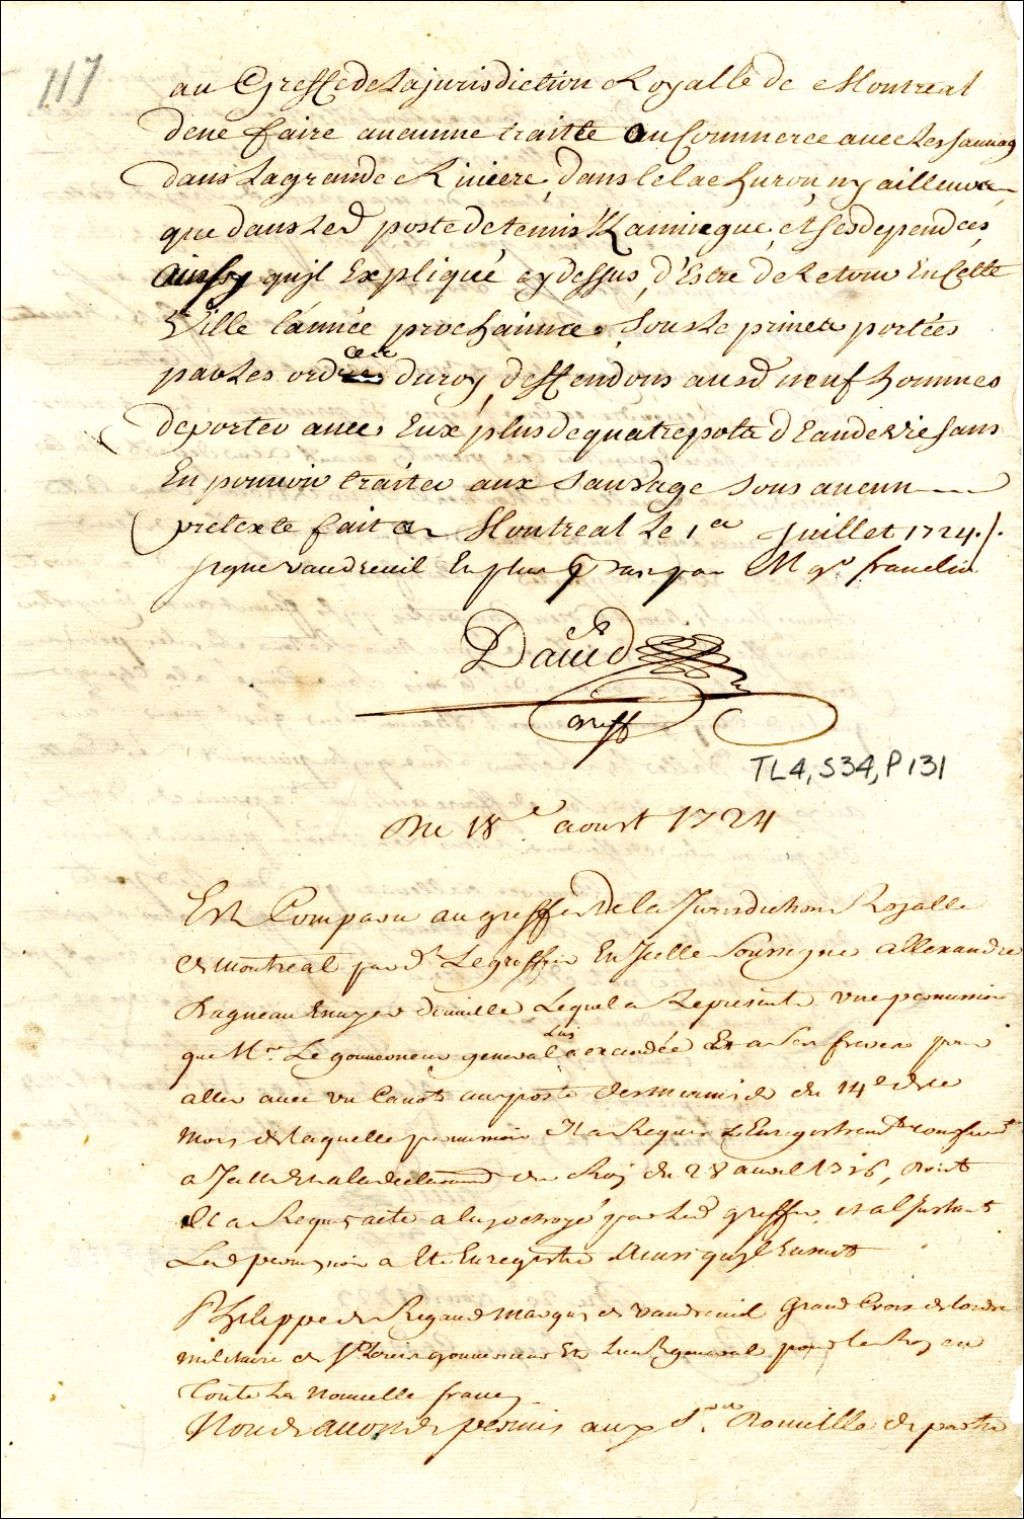 117
au Greffe de la jurisdiction Royalle de Montreal
de ne faire aucunne traitte ou Commerce avec Les sauvag
dans la grande Riviere, dans le lac huron, ny ailleurs
que dans Led poste de temis Kamingue, et ses dependces,
ainsy quil Expliqué cy dessus, d'Estre de Retour En Cette
Ville l'année prochainne, sous Le peines portées
par Les ordces du roy, deffendons ausd neuf hommes
de porter avec Eux plus de quatre pots d'Eau de vie sans
En pouvoir traiter aux Sauvage sous aucun
pretexte fait a Montreal Le 1er Juillet 1724 ./.
signe vaudreuil En plus bas par Mgr franclin
David
Greff
TL4, S34, P131
Du 18e aoust 1724
Est Comparu au greffe de la Jurisdiction Royalle
de montreal pard Le greffier En Icelle Soussigne allexandre
Dagneau Ecuyer douville Lequel a Represente vne permission
que Mr. Le gouverneur general luy a accordée Et a Ses freres pour
aller avec vn Canot au poste des miamis du 14e de ce
mois de laquelle permission Il a Requis L'Enregistremt conformt
a a la declaraon du Roy du 28 avril 1716, dont
Il a Requis acte a luy octroyé par Led greffier, et a l'Instant
Lad permission a Ete Enregistré Ainsi quil Ensuit
Philippe de Rigaud Marquis de Vaudreuil Grand Croix de l'ordre
militaire de St Louis gouverneur Et Lieut general pour le Roy en
Toute La Nouvelle france
Nous avons permis aux Srs Douville de partir